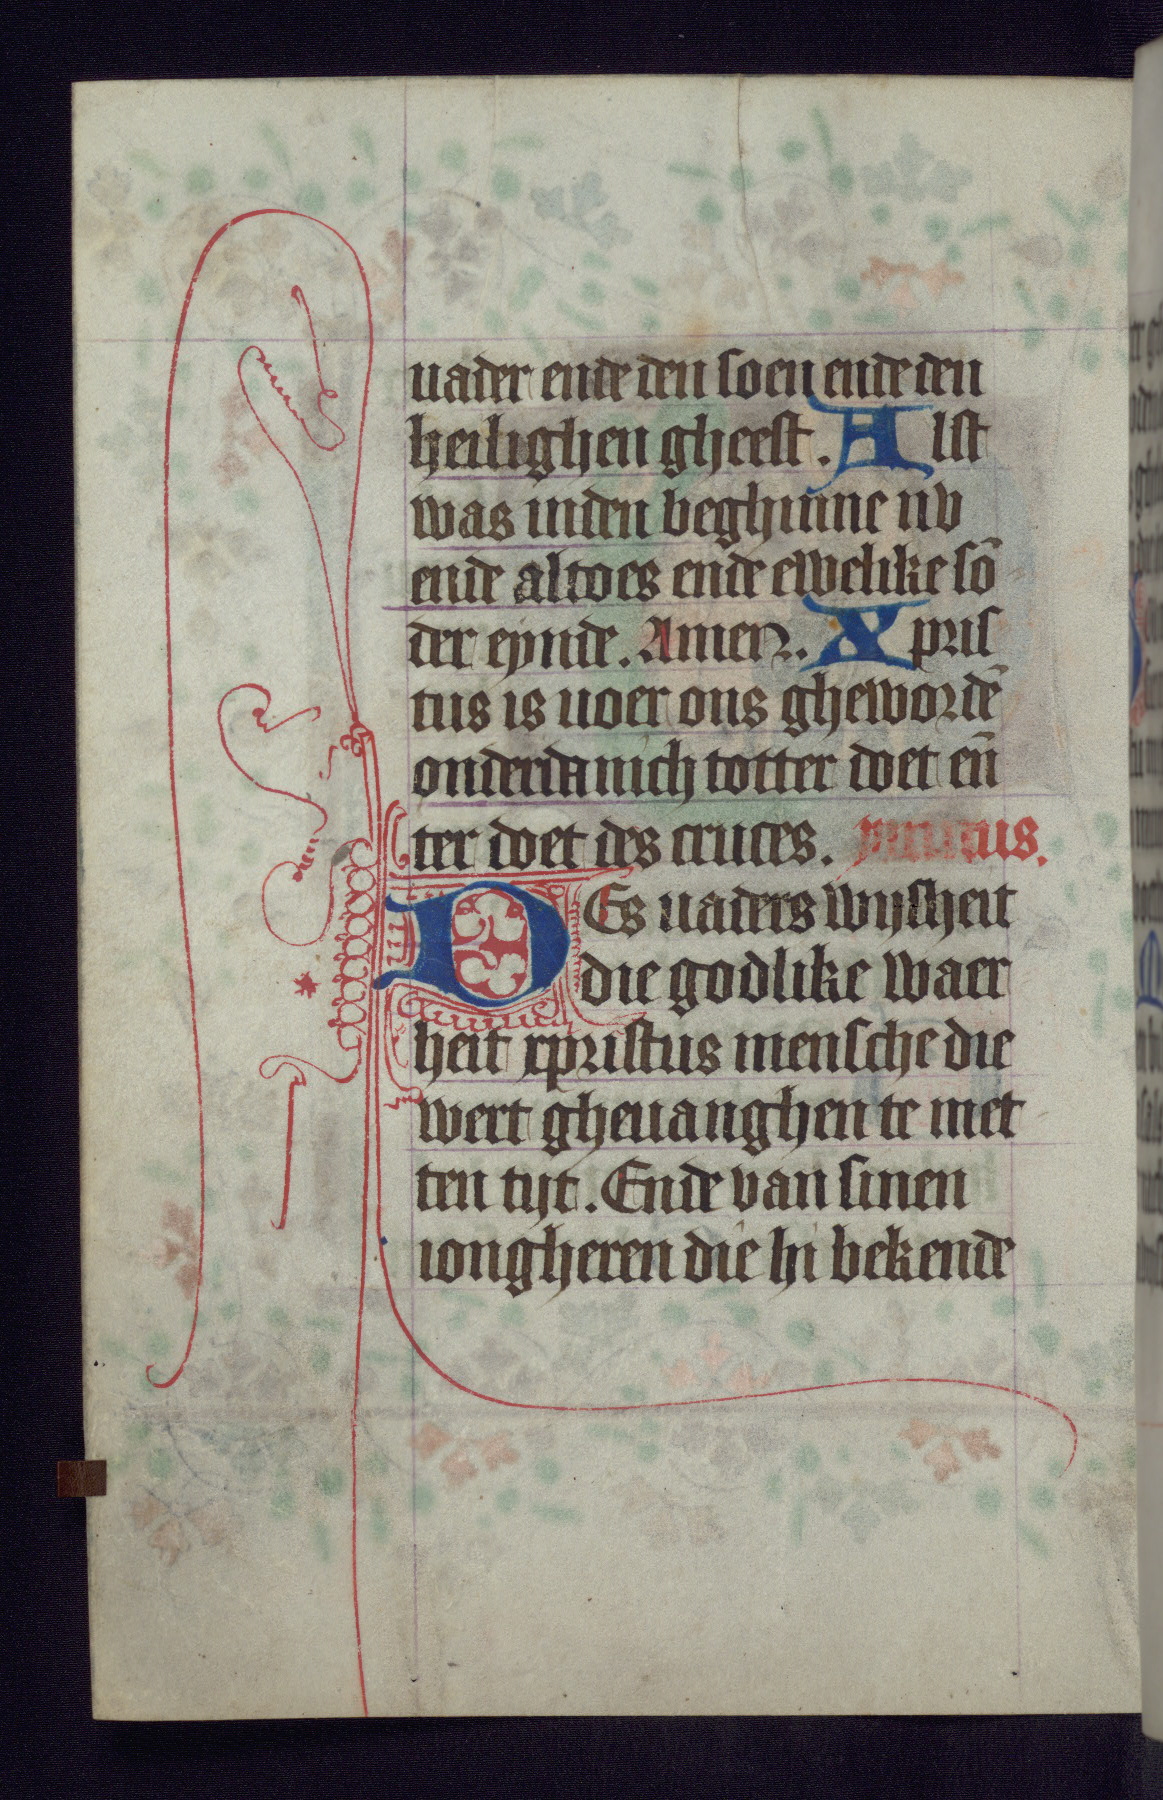 uader ende den soen ende den
heilighen gheest. Alst
was inden beghinne nv
ende altoes ende ewelike sō
der eynde. Amen. Xpris
tus is uoer ons ghewordē
onderdanich totter doet eñ
ter doet des cruces. ymnus.
DEs uaders wijsheit
die godlike waer
heit xpristus mensche die
wert gheuanghen te met
ten tijt. Ende van sinen
iongheren die hi bekende